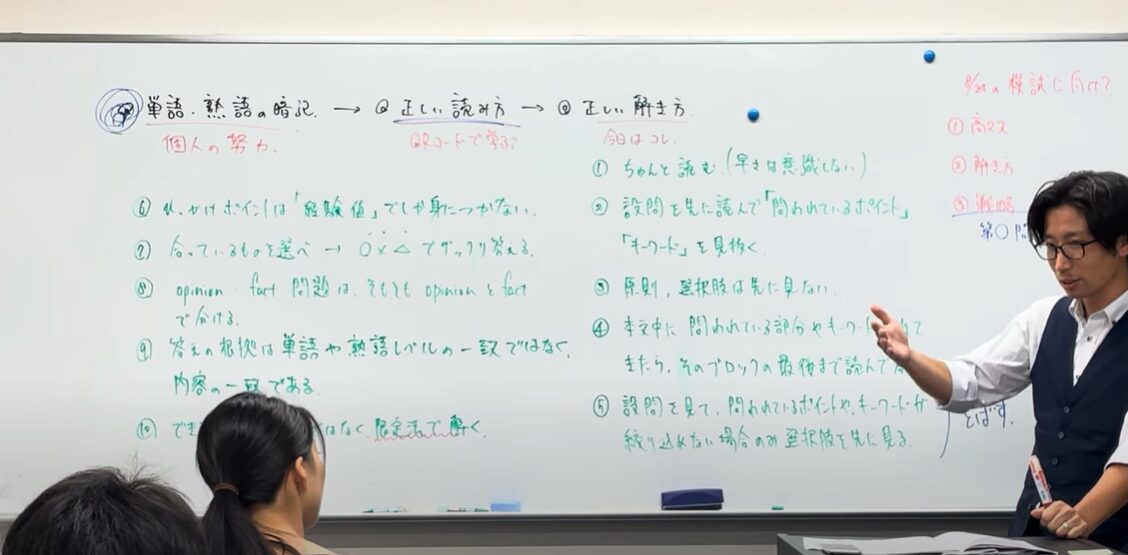 単語・熟語の暗記. → ② 正しい読み方 → ③ 正しい解き方.
個人の努力.
QRコードで学ぶ
今日はコレ.
① ちゃんと読む.(早さは意識しない)
② 設問を先に読んで「問われているポイント」
「キーワード」を見抜く
③ 原則, 選択肢は先に見ない.
④ 本文中に 問われている部分やキーワー
きたら, そのブロックの最後まで読んで
⑤ 設問を見て, 問われているポイントや, キーワードが
絞り込めない場合のみ選択肢を先に見る.
⑥ ひっかけポイントは「経験値」でしか身につかない.
⑦ 合っているものを選べ → ○×△でザックリ答える.
⑧ opinion・fact 問題は, そもそも opinionとfact
で分ける.
⑨ 答えの根拠は単語や熟語レベルの一致ではなく,
内容の一致である.
⑩ でき
はなく, 限定法で解く.
の模試に向け
① 高マス
② 解き方
③ 戦略
第○問
とばす.